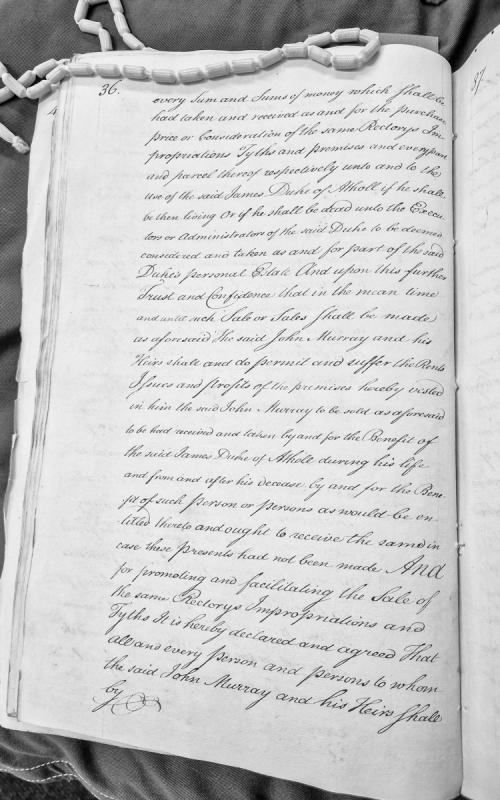 36.
every Sum and Sums of money which shall be
had taken and received as and for the purchase
price or Consideration of the same Rectorys Im-
propriations Tyths and premises and every part
and parcel thereof respectively unto and to the
use of the said James Duke of Atholl if he shall
be then living Or if he shall be dead unto the Execu-
tors or Administrators of the said Duke to be deemed
considered and taken as and for part of the said
Duke's personal Estate And upon this further
Trust and Confidence that in the mean time
and until such Sale or Sales shall be made
as aforesaid The said John Murray and his
Heirs shall and do permit and suffer the Rents
Issues and profits of the premises hereby vested
in him the said John Murray to be sold as aforesaid
to be had received and taken by and for the Benefit of
the said James Duke of Atholl during his life
and from and after his decease by and for the Bene-
fit of such person or persons as would be en-
titled thereto and ought to receive the same in
case these presents had not been made And
for promoting and facilitating the Sale of
the same Rectorys Impropriations and
Tyths It is hereby declared and agreed That
all and every person and persons to whom
the said John Murray and his Heirs shall
by
37